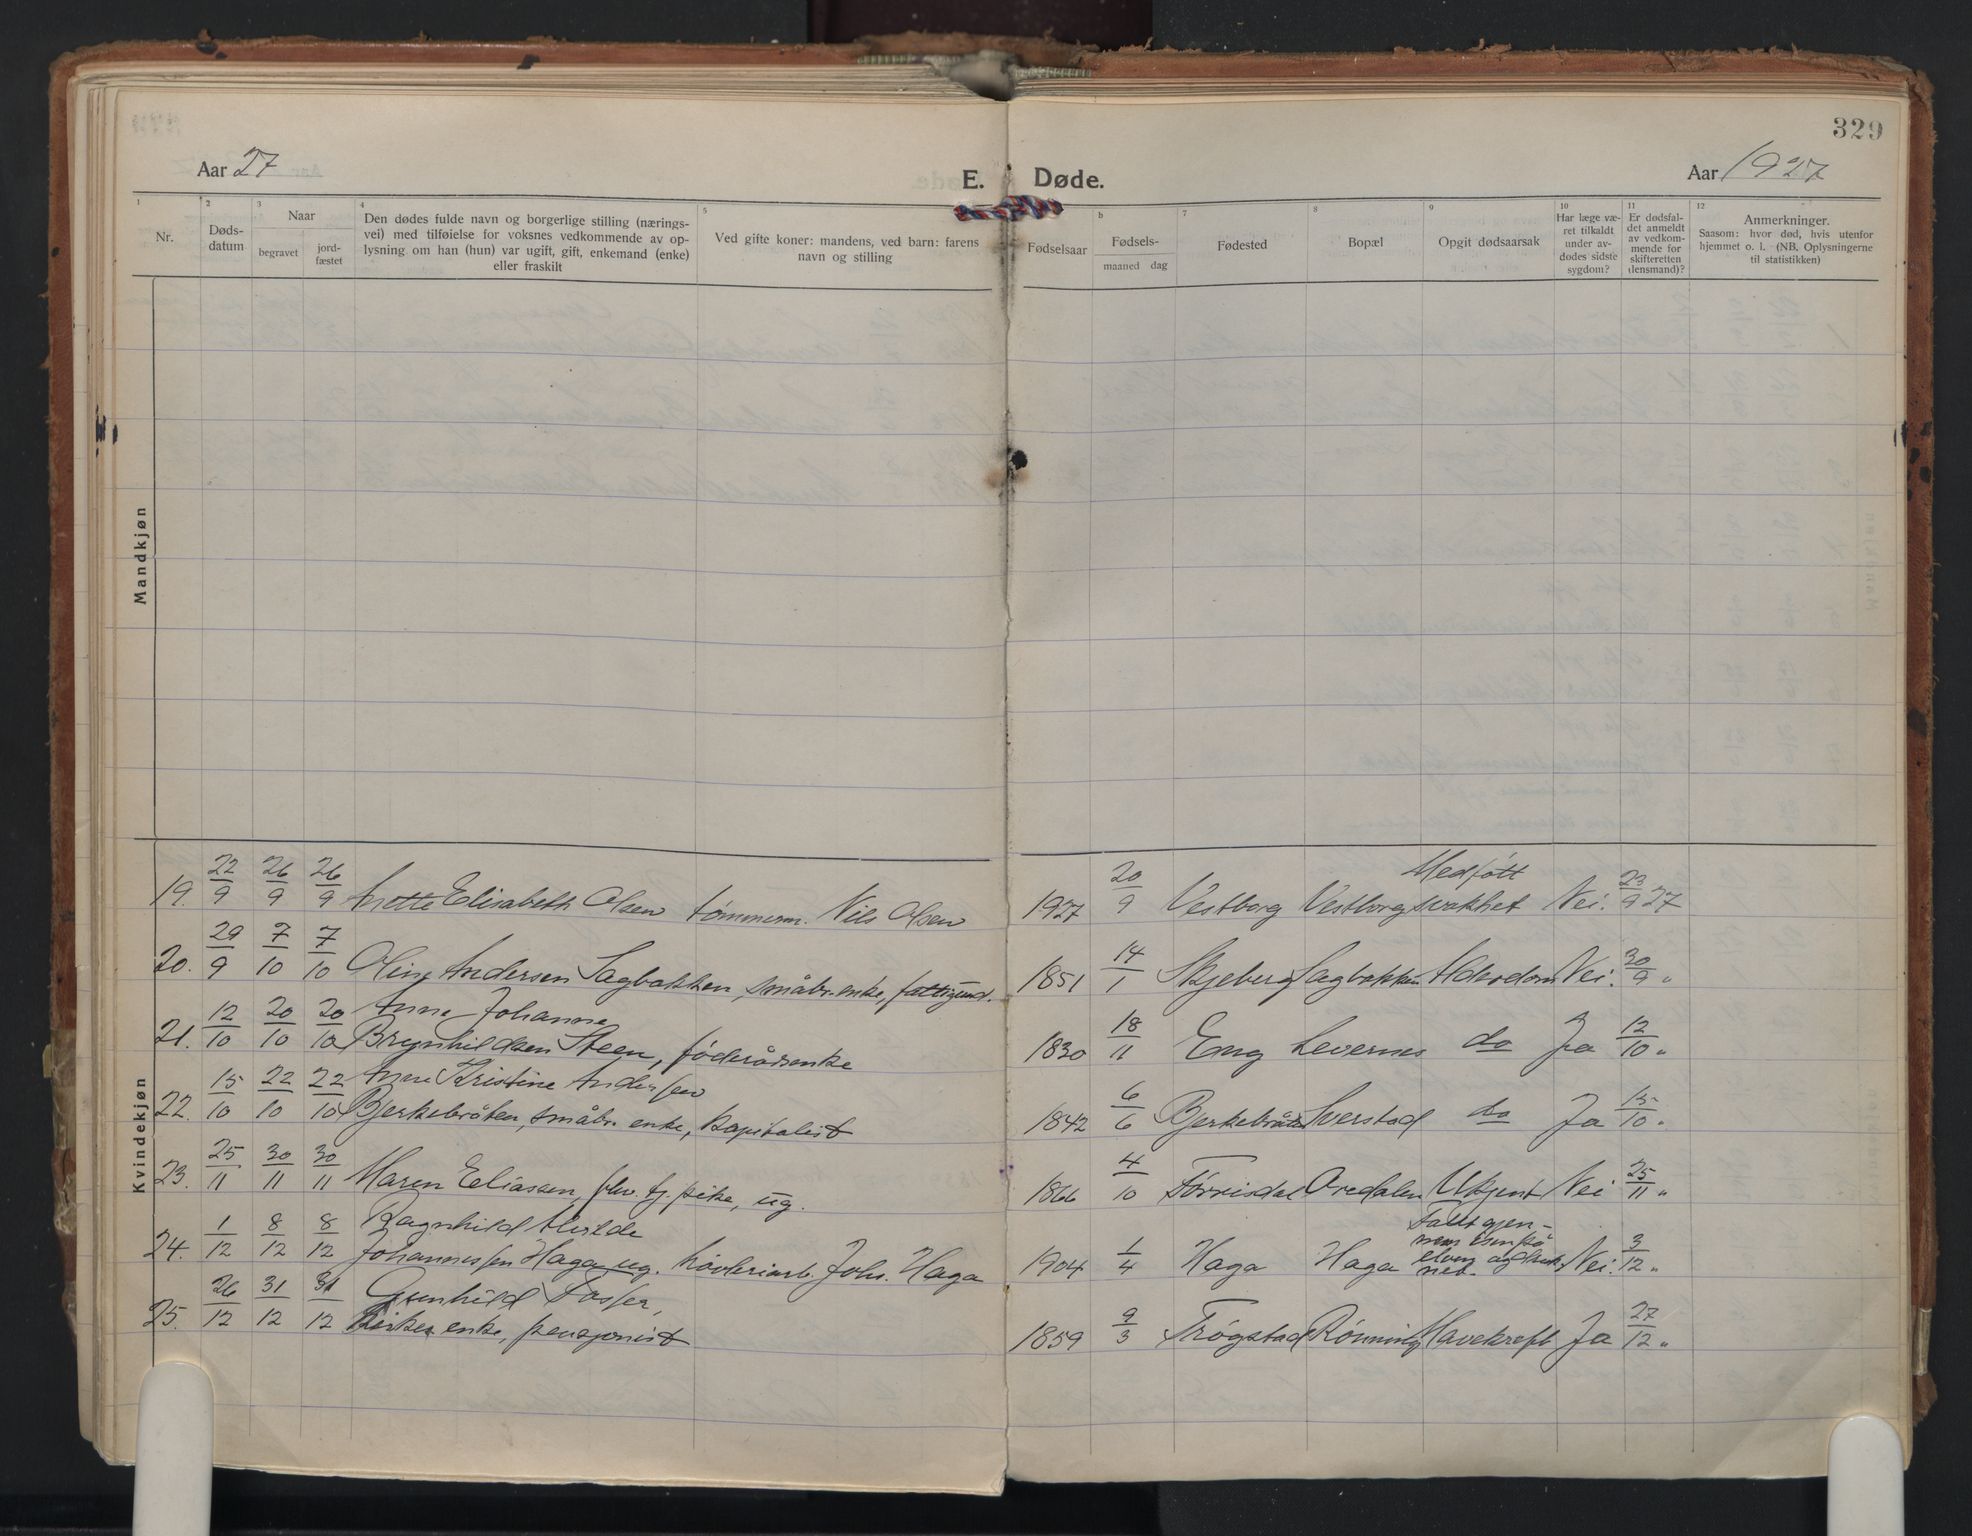 329
Aar 27
E. Døde.
Aar 1927
1 2 3 4 5 b 7 8 9 10 11 12
Nr.
Døds-
datum
Naar
begravet
jord-
fæstet
Den dødes fulde navn og borgerlige stilling (nærings-
vei) med tilføielse for voksnes vedkommende av op-
lysning om han (hun) var ugift, gift, enkemand (enke)
eller fraskilt
Ved gifte koner: mandens, ved barn: farens
navn og stilling
Fødselsaar
Fødsels-
maaned dag
Fødested
Bopæl
Opgit dødsaarsak
Har læge væ-
ret tilkaldt
under av-
dødes sidste
sygdom?
Er dødsfal-
det anmeldt
av vedkom-
mende for
skifteretten
(lensmand)?
Anmerkninger.
Saasom: hvor død, hvis utenfor
hjemmet o. l. (NB. Oplysningerne
til statistikken)
Mandkjøn
Kvindekjøn
19. 22/9 26/9 26/9 Anette Elisabeth Olsen tømmerm. Nils Olsen 1927 20/9 Vestborg Vestborg Medføtt
svakhet Nei. 23/9 27
20. 29/9 7/10 7/10 Oline Andersen Sagbakken, småbr.enke, fattigund. 1851 14/1 Skjeberg Sagbakken Alderdom Nei. 30/9 "
21. 12/10 20/10 20/10 Anne Johanne
Brynhildsen Steen, føderådsenke 1830 18/11 Eng Levernes do Ja 12/10 "
22. 15/10 22/10 22/10 Anne Kristine Andersen
Bjerkebråten, småbr. enke, kapitalist 1842 6/6 Bjerkebråten Sverstad do Ja 15/10 "
23. 25/11 30/11 30/11 Maren Eliassen, fhv. tj.pike, ug. 1866 4/10 Tørrisdal Oredalen Ukjent Nei 25/11 "
24. 1/12 8/12 8/12 Ragnhild Alvilde
Johannessen Haga ug. høvleriarb. Joh. Haga 1904 1/4 Haga Haga Falt gjen-
nem isen på
elven og druk-
net. Nei. 3/12 "
25. 26/12 31/12 31/12 Gunhild Fosser,
enke, pensjonist 1859 9/3 Trøgstad Rønning Mavekreft Ja 27/12 "